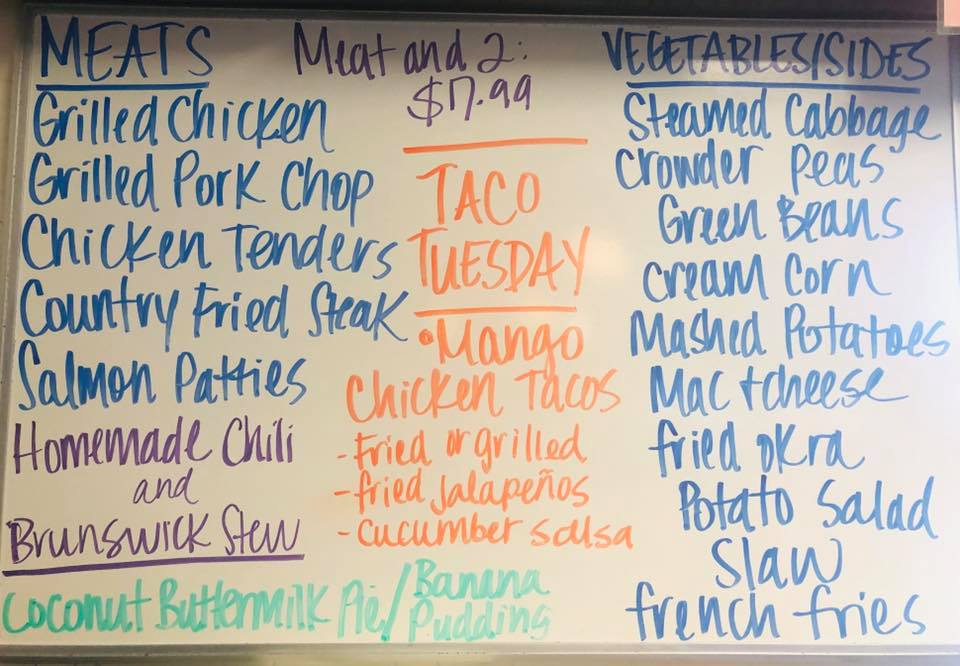 MEATS
Grilled Chicken
Grilled Pork Chop
Chicken Tenders
Country Fried Steak
Salmon Patties
Homemade Chili
and
Brunswick Stew
Meat and 2:
$7.99
TACO
TUESDAY
•Mango
Chicken Tacos
-Fried or grilled
-fried jalapeños
-Cucumber salsa
VEGETABLES/SIDES
Steamed Cabbage
Crowder Peas
Green Beans
Cream Corn
Mashed Potatoes
Mac + cheese
fried okra
Potato Salad
Slaw
french fries
Coconut Buttermilk Pie/Banana
Pudding